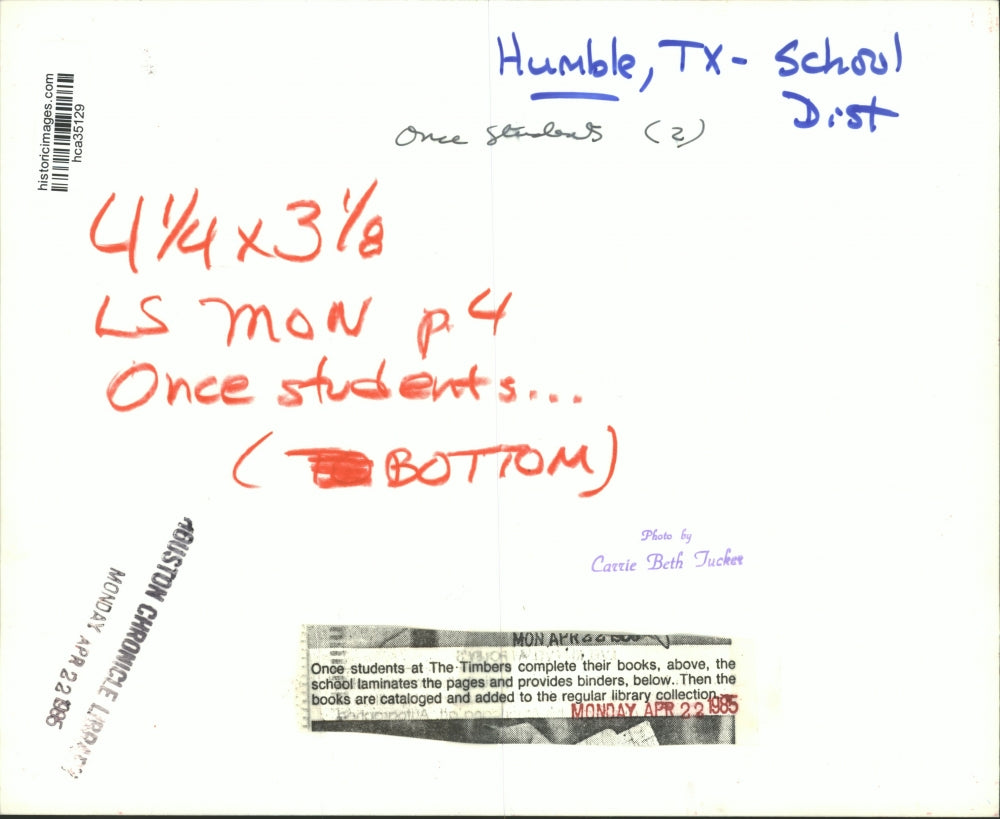 historicimages.com
hca35129
Humble, TX - School
Dist
Once students (2)
4 1/4 x 3 1/8
LS MON p. 4
Once students...
( BOTTOM)
HOUSTON CHRONICLE LIBRARY
MONDAY APR 22 1985
Photo by
Carrie Beth Tucker
MON APR 22
Once students at The Timbers complete their books, above, the
school laminates the pages and provides binders, below. Then the
books are cataloged and added to the regular library collection.
MONDAY APR 22 1985